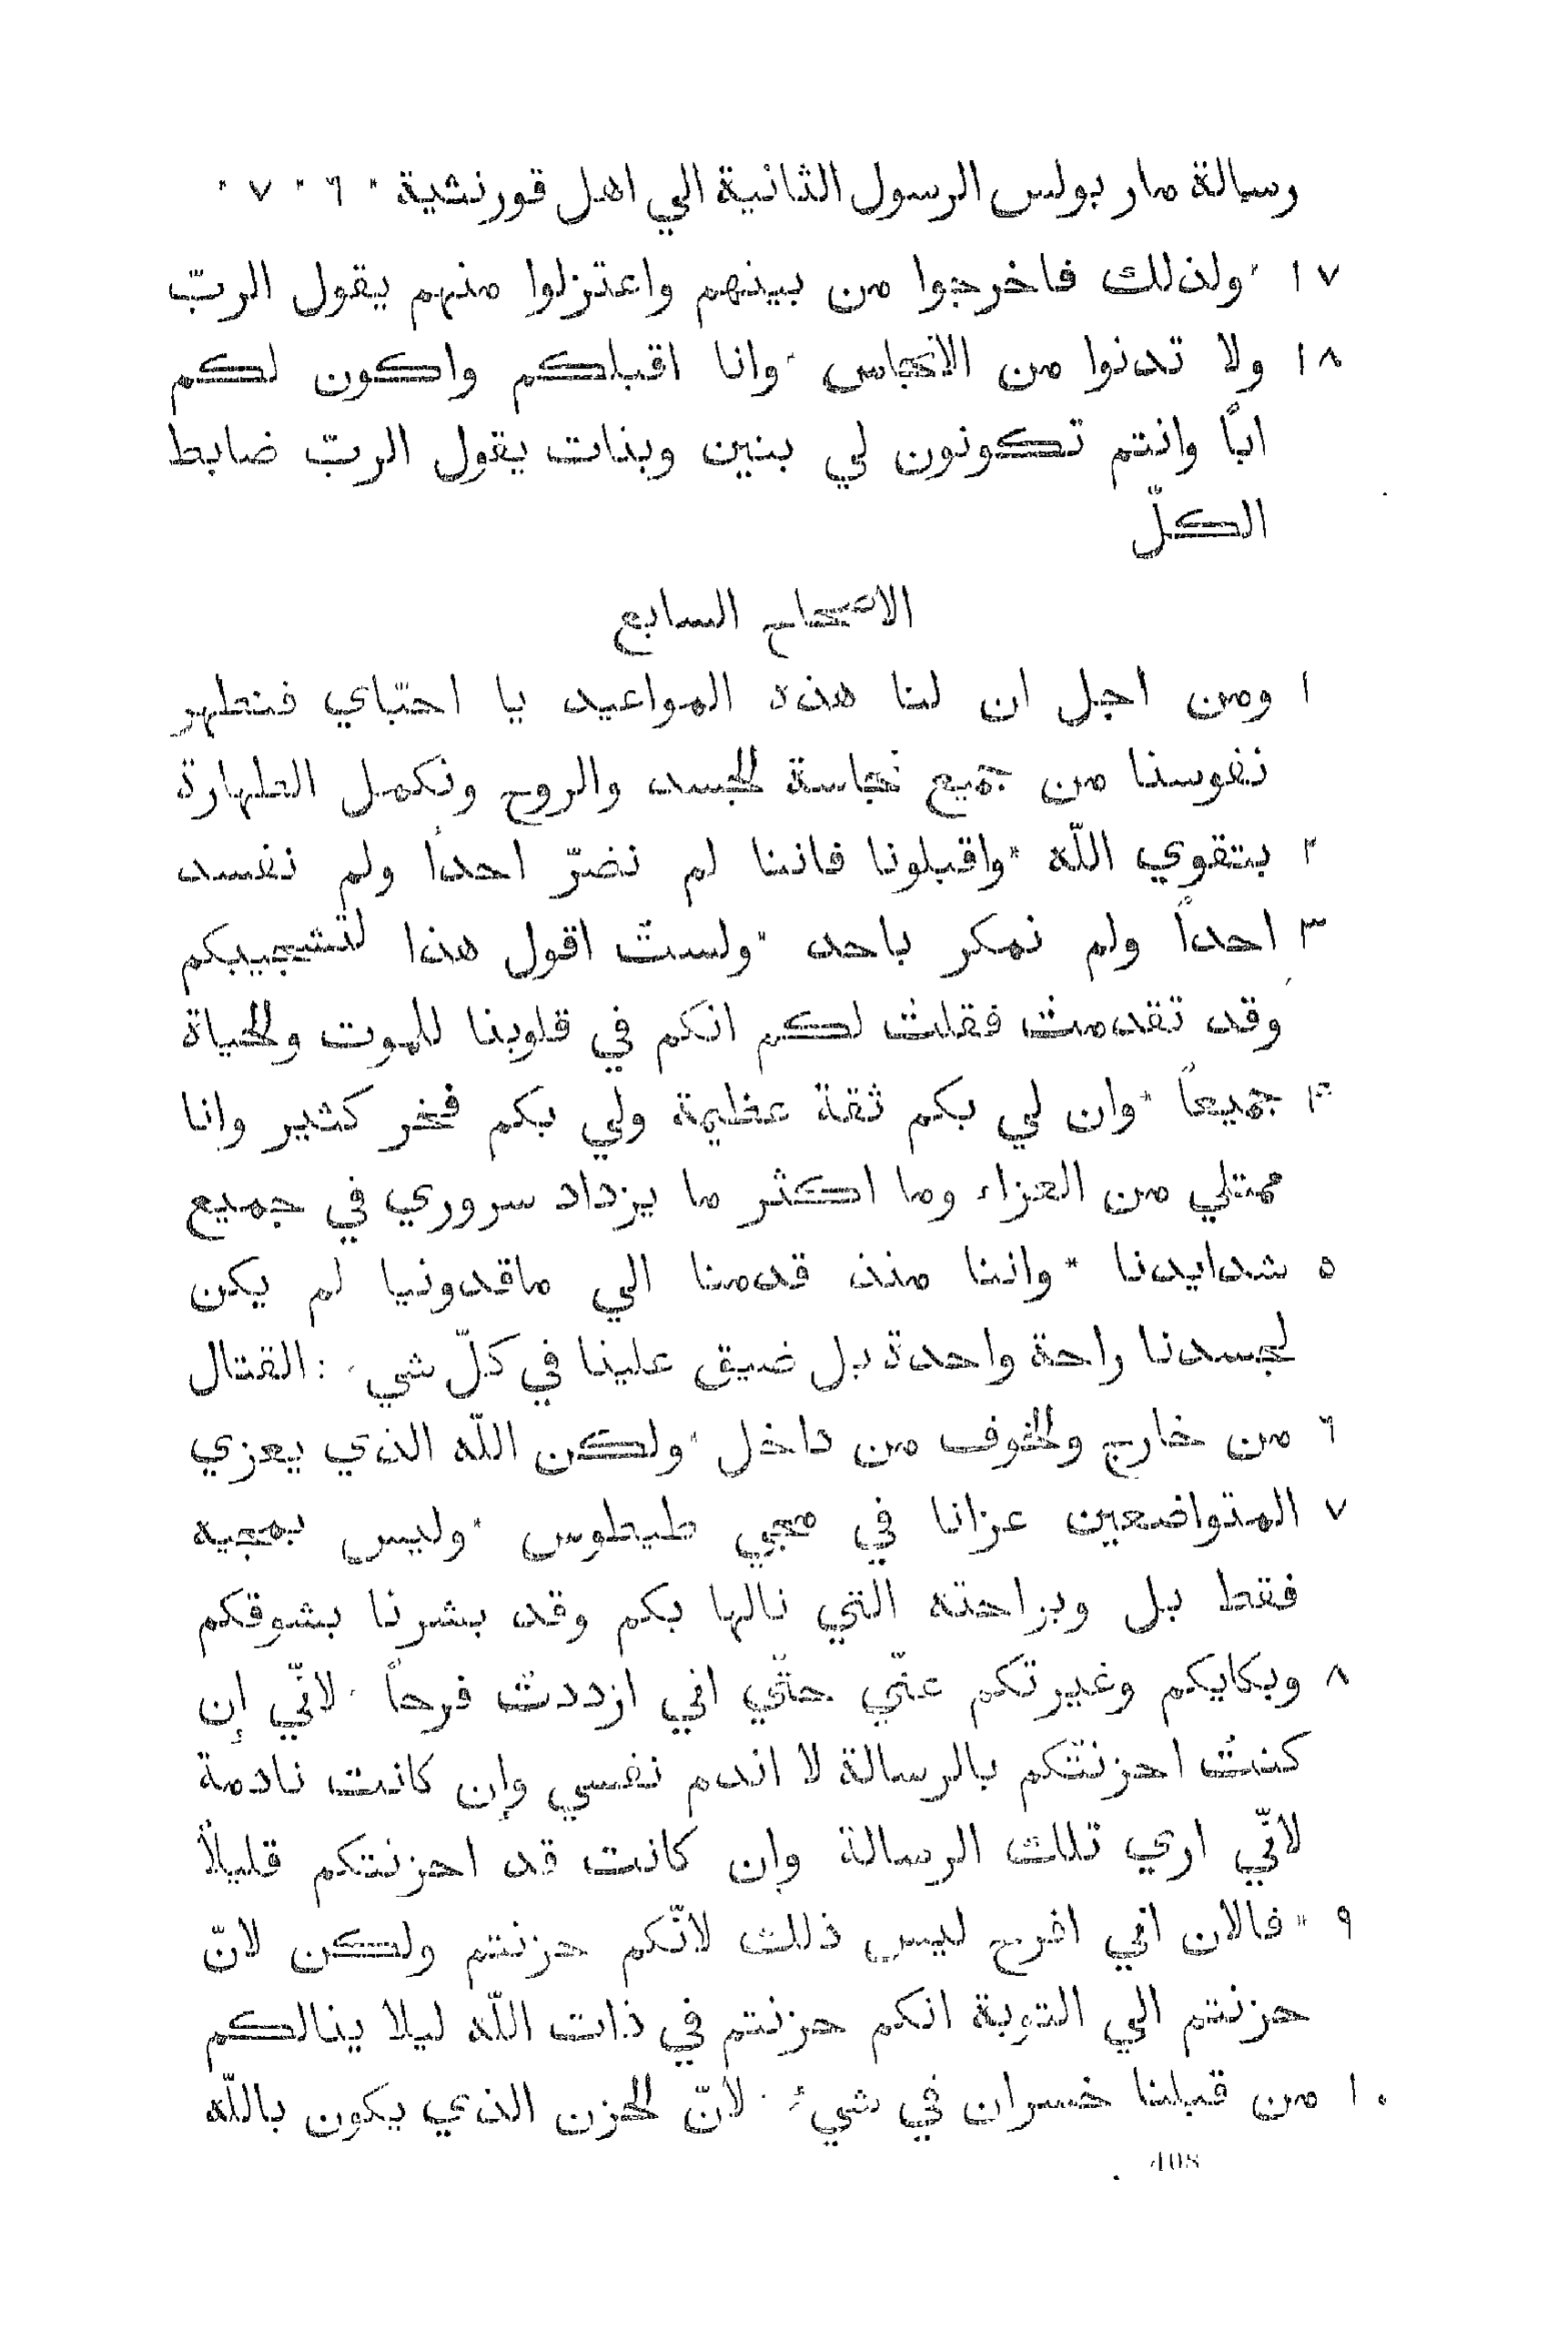 رسالة مار بولس الرسول الثانية الي اهل قورنثية * ٦ * ٧ *
١٧ * ولذلك فاخرجوا من بينهم واعتزلوا منهم يقول الربّ
١٨ ولا تدنوا من الانجاس * وانا اقبلكم واكون لكم
اباً وانتم تكونون لي بنين وبنات يقول الربّ ضابط
الكلّ
الاصحاح السابع
١ ومن اجل ان لنا هذه المواعيد يا احبّاي فنطهر
نفوسنا من جميع نجاسة الجسد والروح ونكمل الطهارة
٢ بتقوي اللّه * واقبلونا فاننا لم نضرّ احداً ولم نفسد
٣ احداً ولم نمكر باحد * ولست اقول هذا لتشجيبكم
وقد تقدمت فقلت لكم انكم في قلوبنا للموت والحياة
٤ جميعاً * وان لي بكم ثقة عظيمة ولي بكم فخر كثير وانا
ممتلي من العزاء وما اكثر ما يزداد سروري في جميع
٥ شدايدنا * واننا منذ قدمنا الي ماقدونيا لم يكن
لجسدنا راحة واحدة بل ضيق علينا في كلّ شيء : القتال
٦ من خارج والخوف من داخل * ولكن اللّه الذي يعزي
٧ المتواضعين عزانا في مجي طيطوس * وليس بمجيه
فقط بل وبراحته التي نالها بكم وقد بشرنا بشوقكم
٨ وبكايكم وغيرتكم عنّي حتّي اني ازددت فرحاً * لانّي إن
كنتُ احزنتكم بالرسالة لا اندم نفسي وإن كانت نادمة
لانّي اري تلك الرسالة وإن كانت قد احزنتكم قليلاً
٩ * فالان اني افرح ليس ذلك لانّكم حزنتم ولكن لانّ
حزنتم الي التوبة انكم حزنتم في ذات اللّه ليلا ينالكم
١٠ من قبلنا خسران في شيءٍ * لانّ الحزن الذي يكون باللّه
408